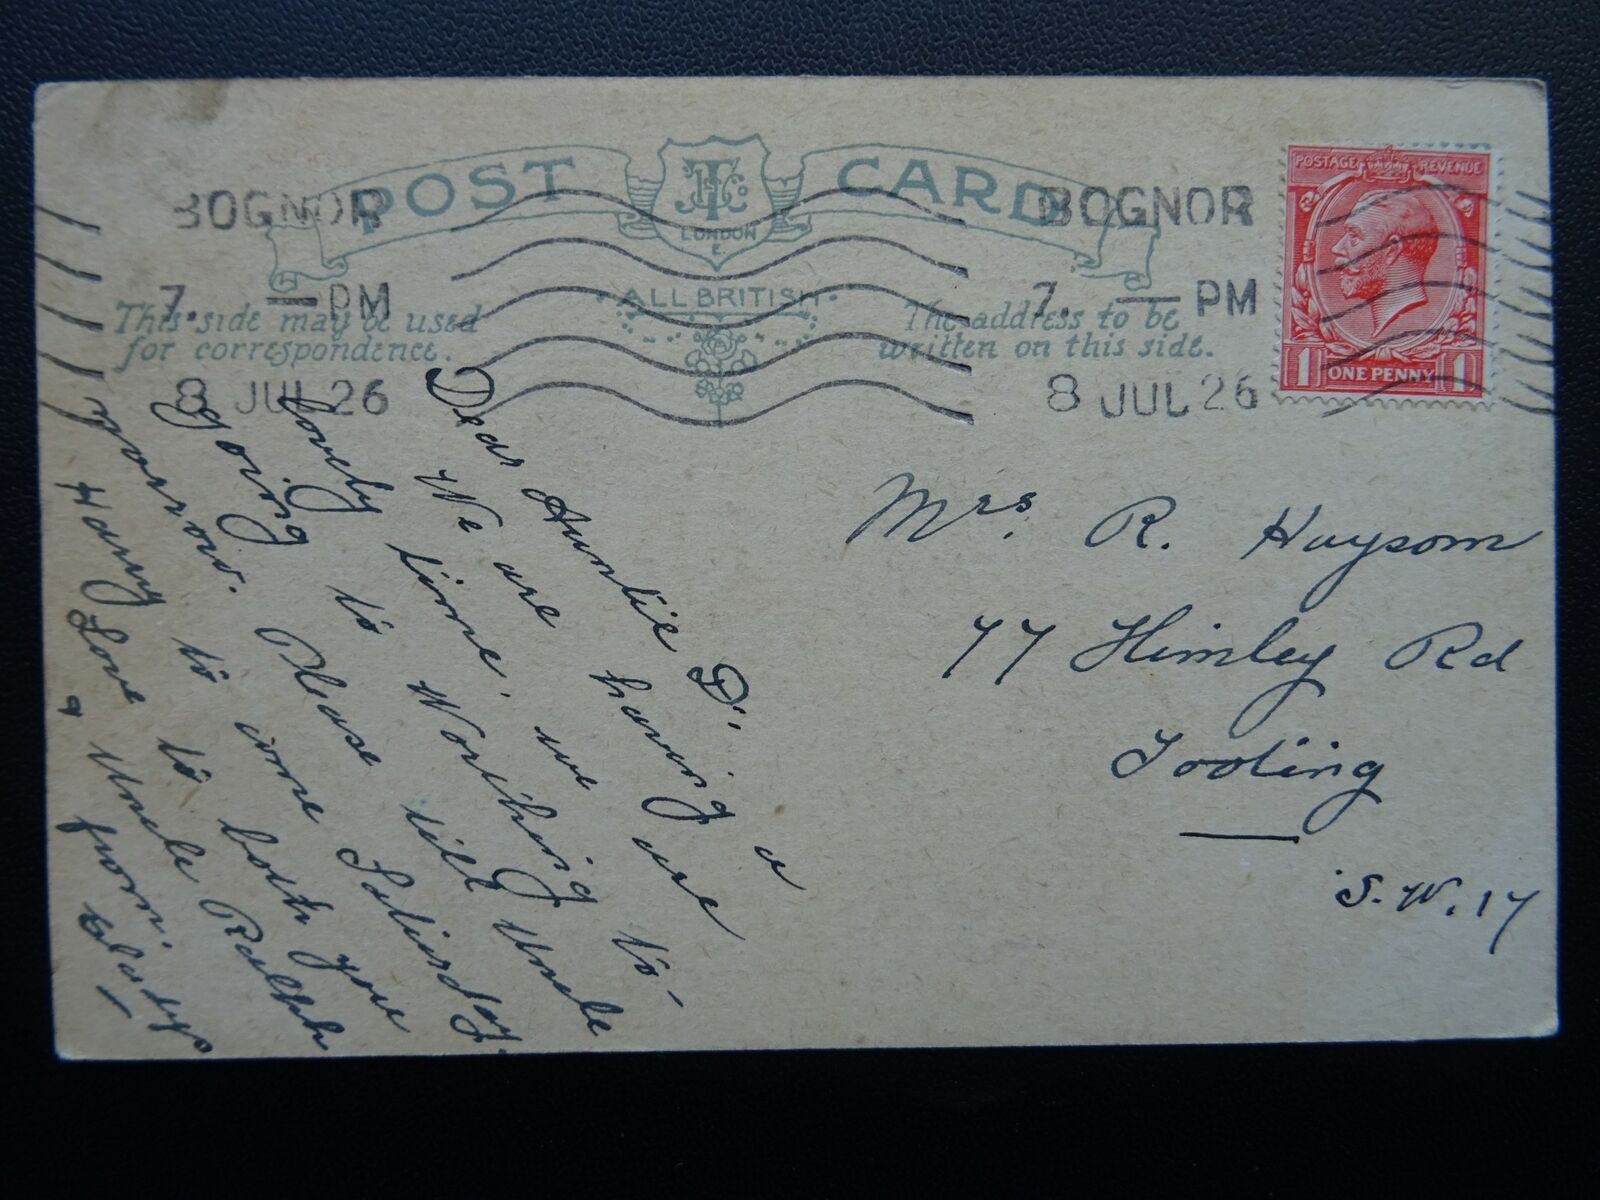 POST CARD
JTC
LONDON
E.
ALL BRITISH
BOGNOR
7. — PM
8 JUL 26
BOGNOR
7. — PM
8 JUL 26
POSTAGE REVENUE
1 ONE PENNY 1
This side may be used
for correspondence.
The address to be
written on this side.
Dear Auntie D:,
We are having a
lovely time, we are
going to Worthing to-
morrow. Please tell Uncle
Harry to come Saturday.
Love to both you
& Uncle Ralph
from.
Gladys
Mrs. R. Haysom
77 Himley Rd
Tooting
S.W.17